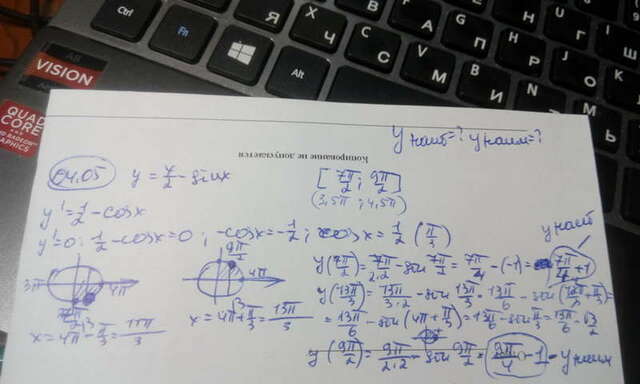 Ctrl
Fn
Alt
Я
Ч
С
М
И
В
А
П
Р
VISION
QUAD
CORE
AMD RADEON
GRAPHICS
Копирование не допускается
y наиб=? y наим=?
04.05
y = x/2 - sinx
[7π/2; 9π/2]
(3,5π ; 4,5π)
y' = 1/2 - cosx
y'=0; 1/2 - cosx=0; -cosx=-1/2; cosx = 1/2 (π/3)
y наиб
3π
4π
7π/2
x = 4π - π/3 = 11π/3
9π/2
4π
x = 4π + π/3 = 13π/3
y(7π/2) = 7π/2·2 - sin 7π/2 = 7π/4 - (-1) = 7π/4 + 1
y(13π/3) = 13π/3·2 - sin 13π/3 = 13π/6 - sin(12π/3 + π/3) =
= 13π/6 - sin(4π + π/3) = 13π/6 - sin π/3 = 13π/6 - √3/2
y(9π/2) = 9π/2·2 - sin 9π/2 = 9π/4 - 1 - y наим